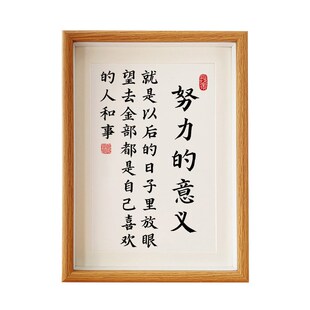 努力的意义
就是以后的日子里放眼
望去金部都是自己喜欢
的人和事